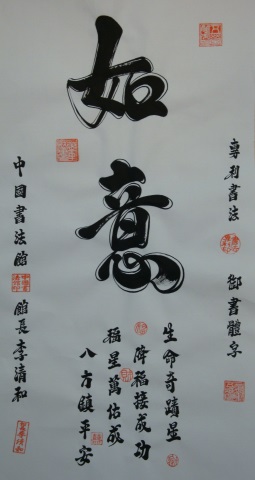 如意
專利書法
御書體字
生命奇蹟星
降福接成功
福星萬佑成
八方鎮平安
中國書法館
館長李清和